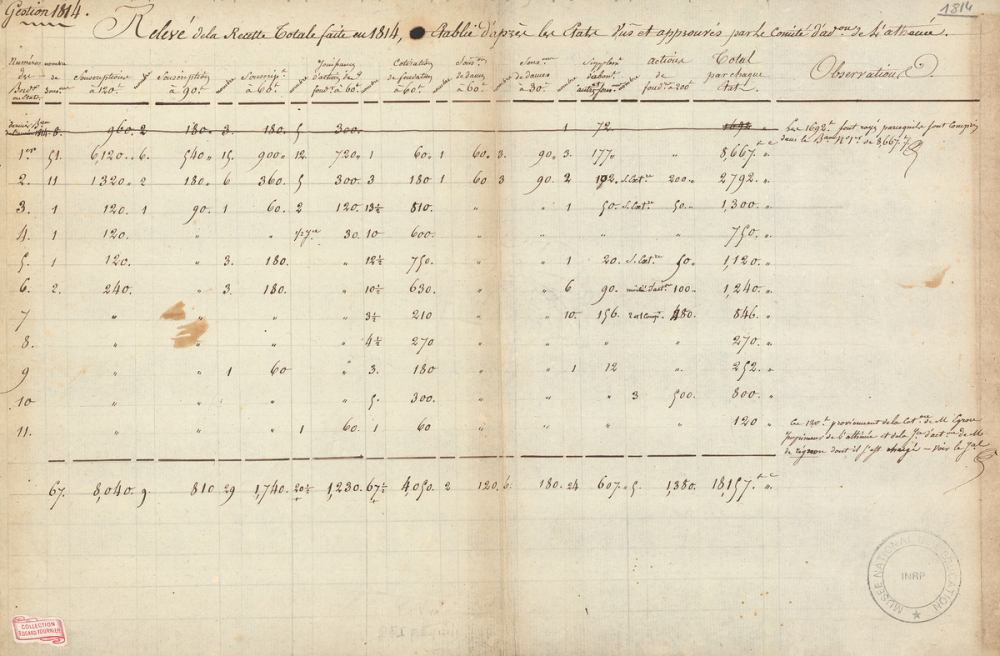 Gestion 1814.
1814
Relevé de la Recette Totale faite en 1814, Etablie d'après les Etats Vus et approuvés par le Comité d'ad.on de L'athénée.
Numéros des Bord.x ou Etats | nombre de | Souscriptions à 120.# | Souscription à 90.# | nombre | Souscript.n à 60.# | nombre | Jouissances d'action de fond.n à 60.# | nombre | Cotisation de fondation à 60.# | nombre | Sous.on de dames à 60.# | nombre | Sous.on de dames à 30.# | nombre | Supplém.t d'abon.t | actions de fond.on à 200.# | Total par chaque Etat. | Observations
8. 960. 2 180. 3. 180. 5 300. 1 72. 1692 Les 1692.# sont rayés parcequ'ils sont compris
dans le N.o 1.er de 8,667.#
1.er 51. 6,120. 6. 540. 15. 900. 12. 720. 1 60. 1 60. 3. 90. 3. 177. " 8,667.
2. 11 1320. 2 180. 6 360. 5 300. 3 180 1 60 3 90. 2 192. S. Cot.on 200. 2792.
3. 1 120. 1 90. 1 60. 2 120. 13½ 810. " " 1 50. S. Cot.on 50. 1,300.
4. 1 120. " " 30. 10 600. " " " " 750.
5. 1 120. " 3. 180. " 12½ 750. " 1 20. S. Cot.on 50. 1,120.
6. 2. 240. " 3. 180. " 10½ 630. " 6 90. 100. 1,240.
7 " " " " 3½ 210 " 10. 156. 480. 846.
8. " " " " 4½ 270 " " " 270.
9 " " 1 60 " 3. 180 " 1 12 " 252.
10 " " " " 5. 300. " " 3 500. 800.
11. " " " 1 60. 1 60 " " " 120 Ces 120.# proviennent de la Cot.on de M.
de l'athénée et de la J.ce d'act.on de M.
de dont il s'est chargé — Voir le J.al
67. 8,040. 9. 810 29 1,740. 20½ 1,230. 67½ 4,050. 2 120. 6. 180. 24 607. 5. 1,380. 18,157.
MUSÉE NATIONAL DE L'ÉDUCATION
INRP
COLLECTION
EDGARD FOURNIER